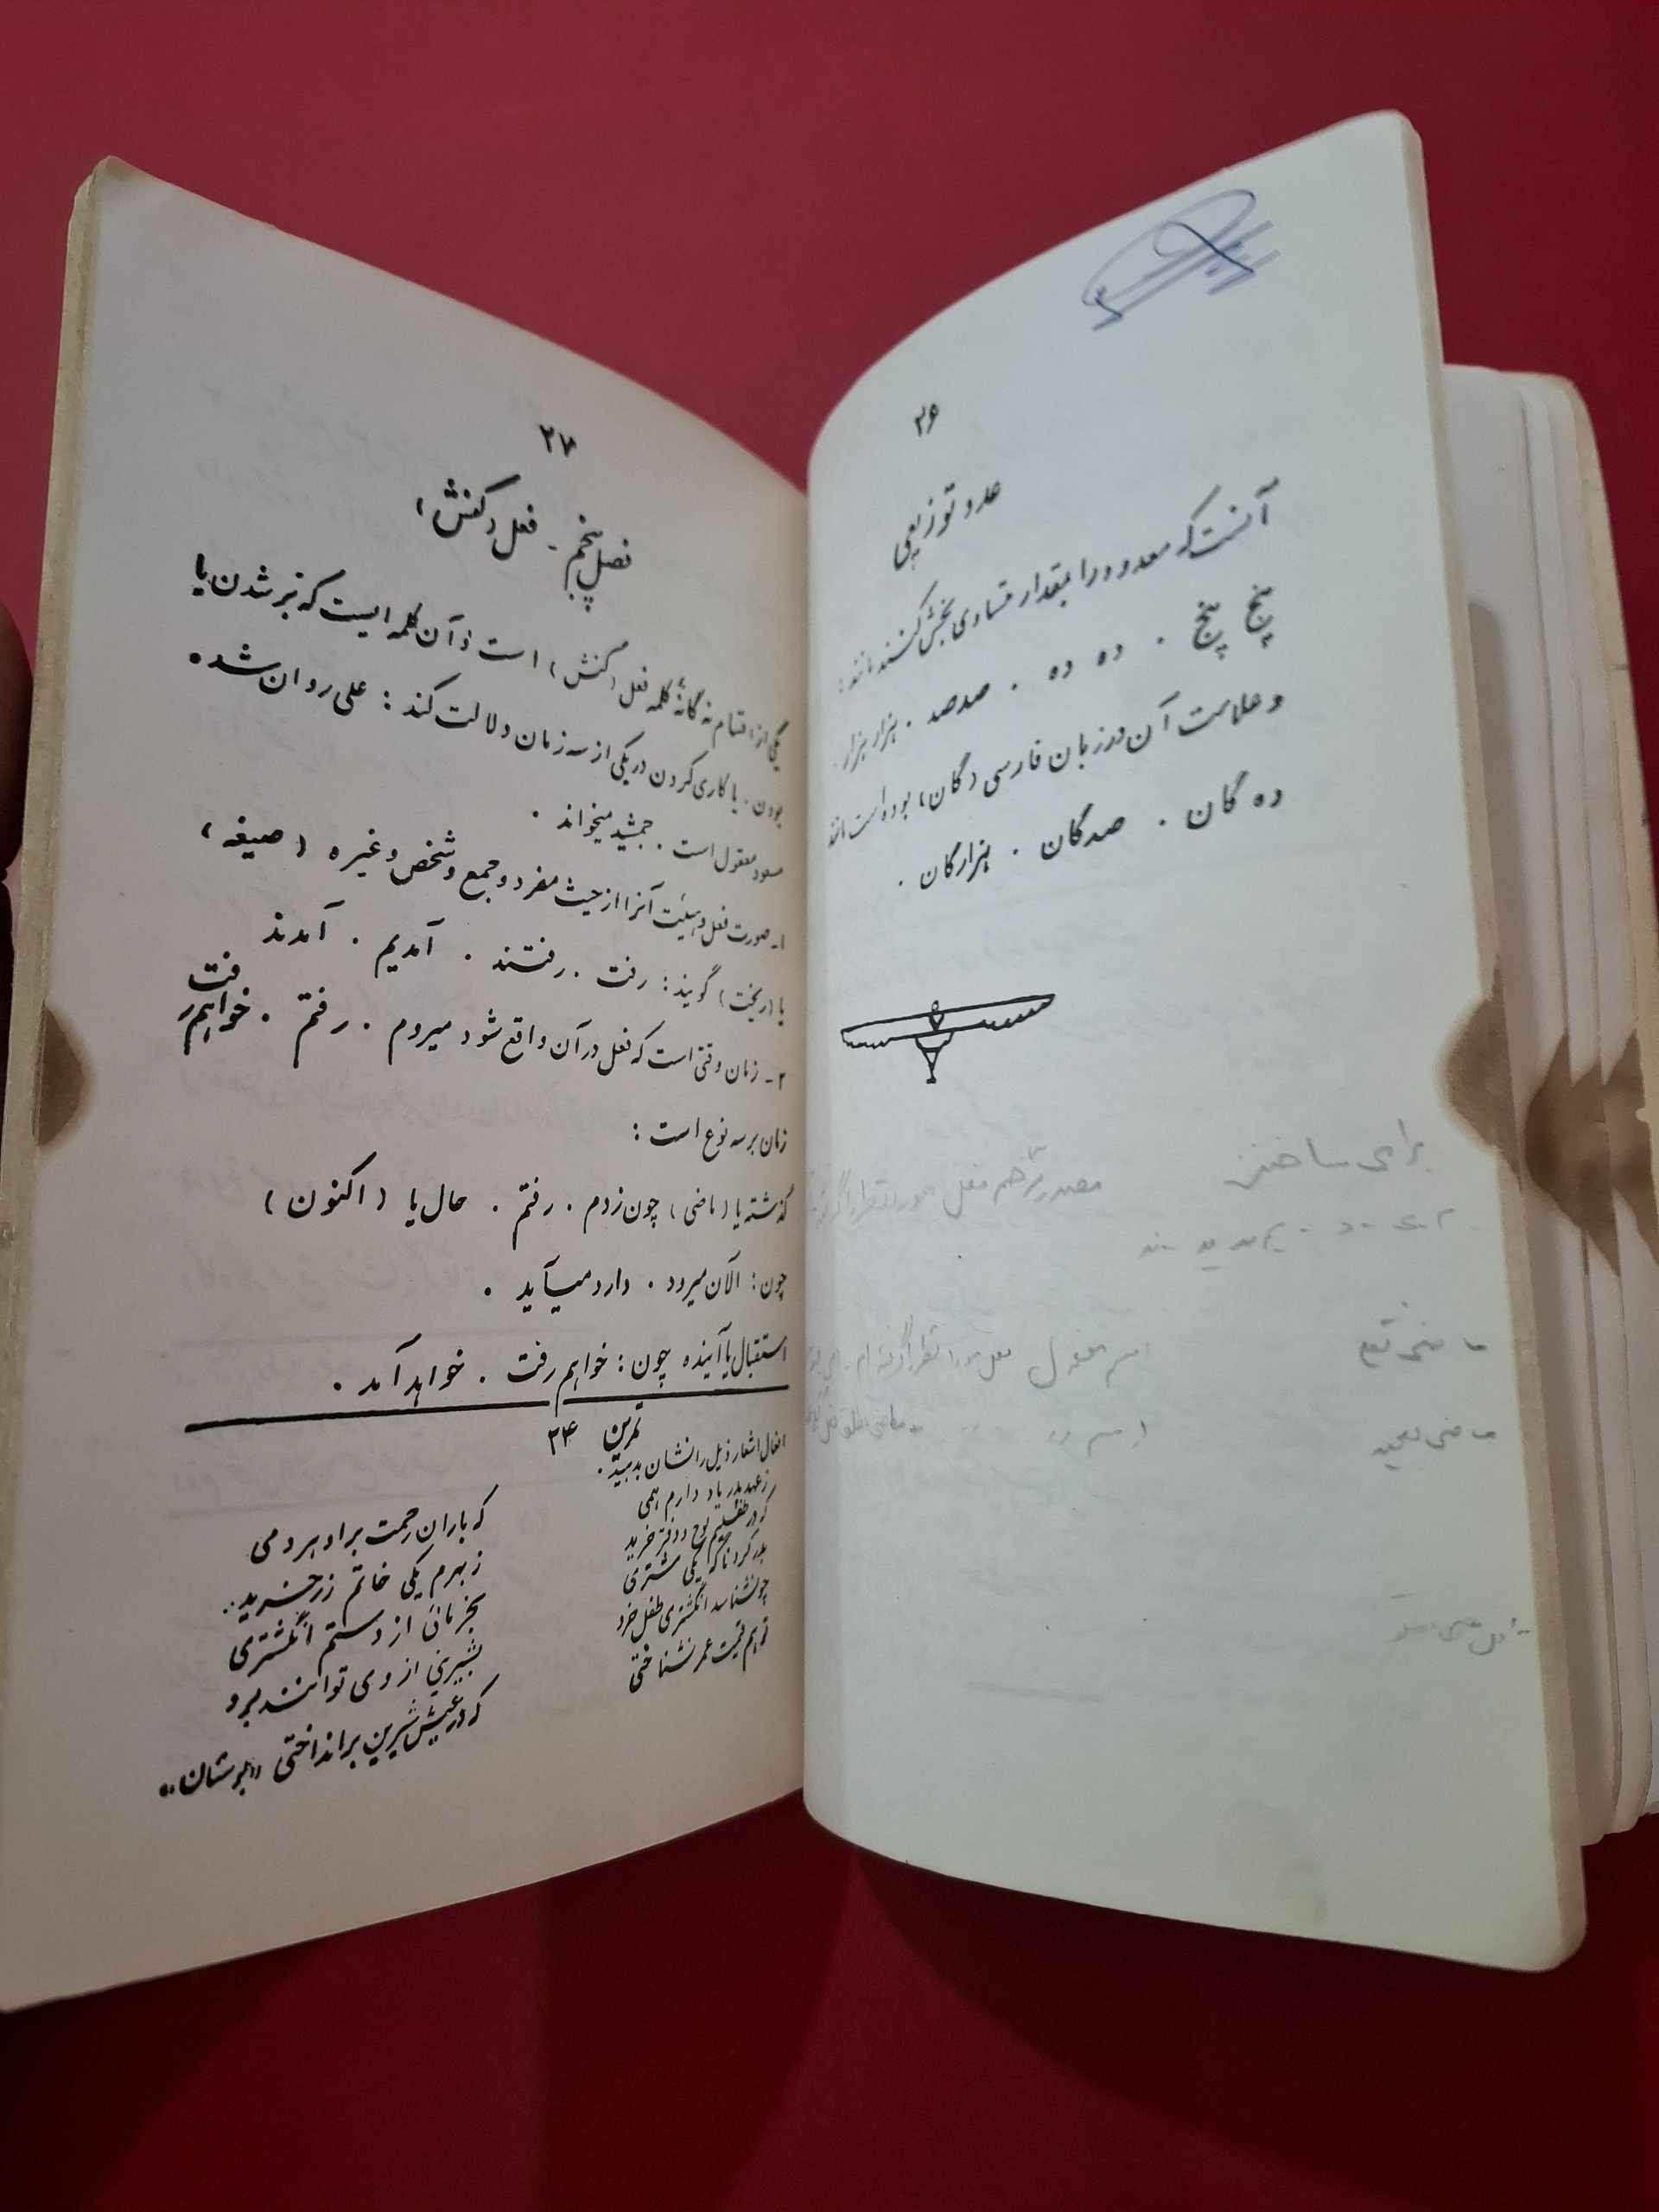 ۲۶
عدد توزیعی
آنست که معدود را بمقدار متساوی بخش کنند مانند :
پنج پنج . ده ده . صد صد . هزار هزار .
و علامت آن در زبان فارسی (گان) بوده است مانند
ده گان . صدگان . هزارگان .
برای ساختن
ماضی بعید
۲۷
فصل پنجم - فعل (کنش)
یکی از اقسام نه گانهٔ کلمه فعل (کنش) است و آن کلمه ایست که بر شدن یا
بودن . یا کاری کردن در یکی از سه زمان دلالت کند : علی روان شد .
مسعود معقول است . جمشید میخواند .
۱- صورت فعل و هیئت آنرا از حیث مفرد و جمع و شخص و غیره (صیغه)
یا (ریخت) گویند : رفت . رفتند . آمدیم . آمدند
۲- زمان وقتی است که فعل در آن واقع شود میروم . رفتم . خواهم رفت
زمان بر سه نوع است :
گذشته یا (ماضی) چون زدم . رفتم . حال یا (اکنون)
چون : الآن میرود . دارد میآید .
استقبال یا آینده چون : خواهم رفت . خواهد آمد .
تمرین ۲۴
افعال اشعار ذیل را نشان بدهید .
ز عهد پدر یاد دارم همی که باران رحمت بر او هر دمی
که در طفلیم لوح و دفتر خرید ز بهرم یکی خاتم زر خرید ..
بدر کرد ناگه یکی مشتری بخرمائی از دستم انگشتری
چو نشناسد انگشتری طفل خرد بشیرینی از وی توانند برد
تو هم قیمت عمر نشناختی که در عیش شیرین برانداختی «بوستان»